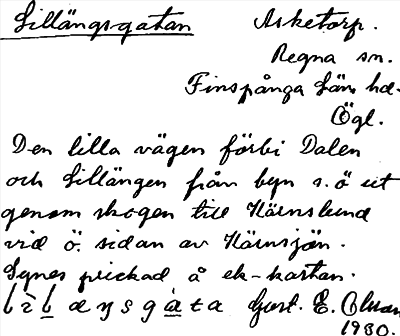 Lillängsgatan Asketorp.
Regna sn.
Finspånga läns hd.
Ögl.
Den lilla vägen förbi Dalen
och Lillängen från byn s. ö ut
genom skogen till Kärnslund
vid ö. sidan av Kärnsjön.
Synes prickad å ek-kartan.
Gust. E. Olsson
1930.